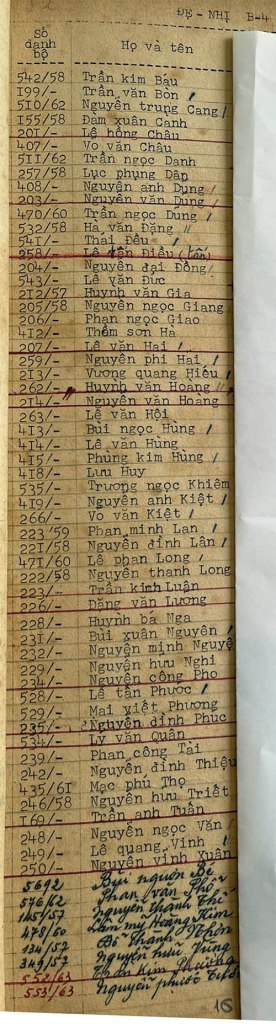 ĐỆ - NHỊ B-4
Số danh bộ Họ và tên
542/58 Trần kim Báu
I99/- Trần văn Bôn /
5I0/62 Nguyễn trung Cang /
I55/58 Đàm xuân Cảnh
20I/- Lê hồng Châu
407/- Võ văn Châu
5II/62 Trần ngọc Danh
257/58 Lục phụng Dân
408/- Nguyễn anh Dụng /
203/- Nguyễn văn Dụng /
470/60 Trần ngọc Dũng /
532/58 Hà văn Đặng //
54I/- Thái Đều /
258/- Lê tấn Điều (tấn)
204/- Nguyễn đại Đồng /
543/- Lê văn Đức
2I2/57 Huỳnh văn Gia
205/58 Nguyễn ngọc Giang
206/- Phan ngọc Giao
4I2/- Thềm sơn Hà
207/- Lê văn Hai /
259/- Nguyễn phi Hai /
2I3/- Vương quang Hiếu /
262/- Huỳnh văn Hoàng //
2I4/- Nguyễn văn Hoàng
263/- Lê văn Hội
4I3/- Bùi ngọc Hùng /
4I4/- Lê văn Hùng
4I5/- Phùng kim Hùng /
4I8/- Lưu Huy
535/- Trương ngọc Khiêm
4I9/- Nguyễn anh Kiệt /
266/- Võ văn Kiệt /
223/59 Phan minh Lan /
22I/58 Nguyễn đình Lân /
47I/60 Lê phan Long /
222/58 Nguyễn thanh Long
223/- Trần kích Luận
226/- Đặng văn Lương
228/- Huỳnh bá Nga
23I/- Bùi xuân Nguyên /
232/- Nguyễn minh Nguyệ
229/- Nguyễn hữu Nghi
234/- Nguyễn công Pho
528/- Lê tấn Phước /
529/- Mai viết Phương
235/- Nguyễn đình Phúc
534/- Lý văn Quân
239/- Phan công Tài
242/- Nguyễn đình Thiệu
435/6I Mạc phú Thọ
246/58 Nguyễn hữu Triết
I69/- Trần anh Tuấn
248/- Nguyễn ngọc Văn
249/- Lê quang Vinh /
250/- Nguyễn vinh Xuân
5692 Bùi nguơn Bé
576/62 Phan văn Phố
1165/57 Nguyễn thanh Thế
478/60 Lâm mỹ Hoàng Kim
134/57 Đỗ thành Nhơn
349/57 Nguyễn hữu Vững
552/63 Trần kim Phượng
553/63 Nguyễn phước
16